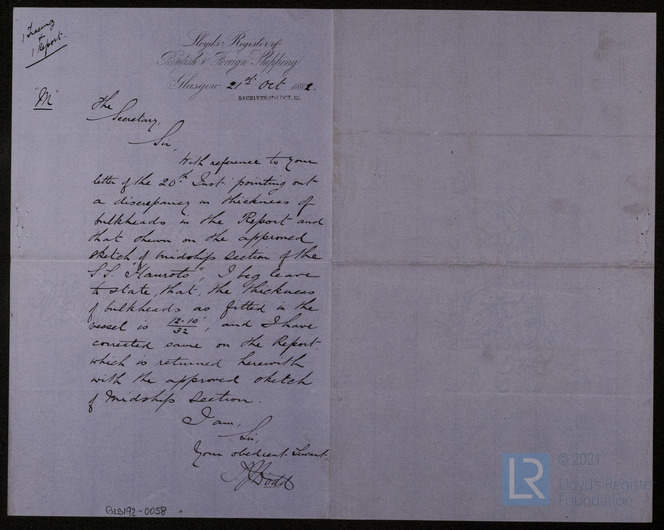 1 Tracing
+
1 Report.
Lloyd's Register of
British & Foreign Shipping
Glasgow 21st Oct 1882.
RECEIVED OCT. 82
"M"
The
Secretary,
Sir,
With reference to your
letter of the 20th Inst. pointing out
a discrepancy in thickness of
bulkheads in the Report and
that shewn on the approved
sketch of midship section of the
S.S. "Manroto", I beg leave
to state, that, the thickness
of bulkheads as fitted in the
vessel is 12-10/32", and I have
corrected same on the Report
which is returned herewith
with the approved sketch
of midship section.
I am,
Sir,
Your obedient Servant.
Dodd
GLS192-0058
LR
© 2021
Lloyd's Register
Foundation